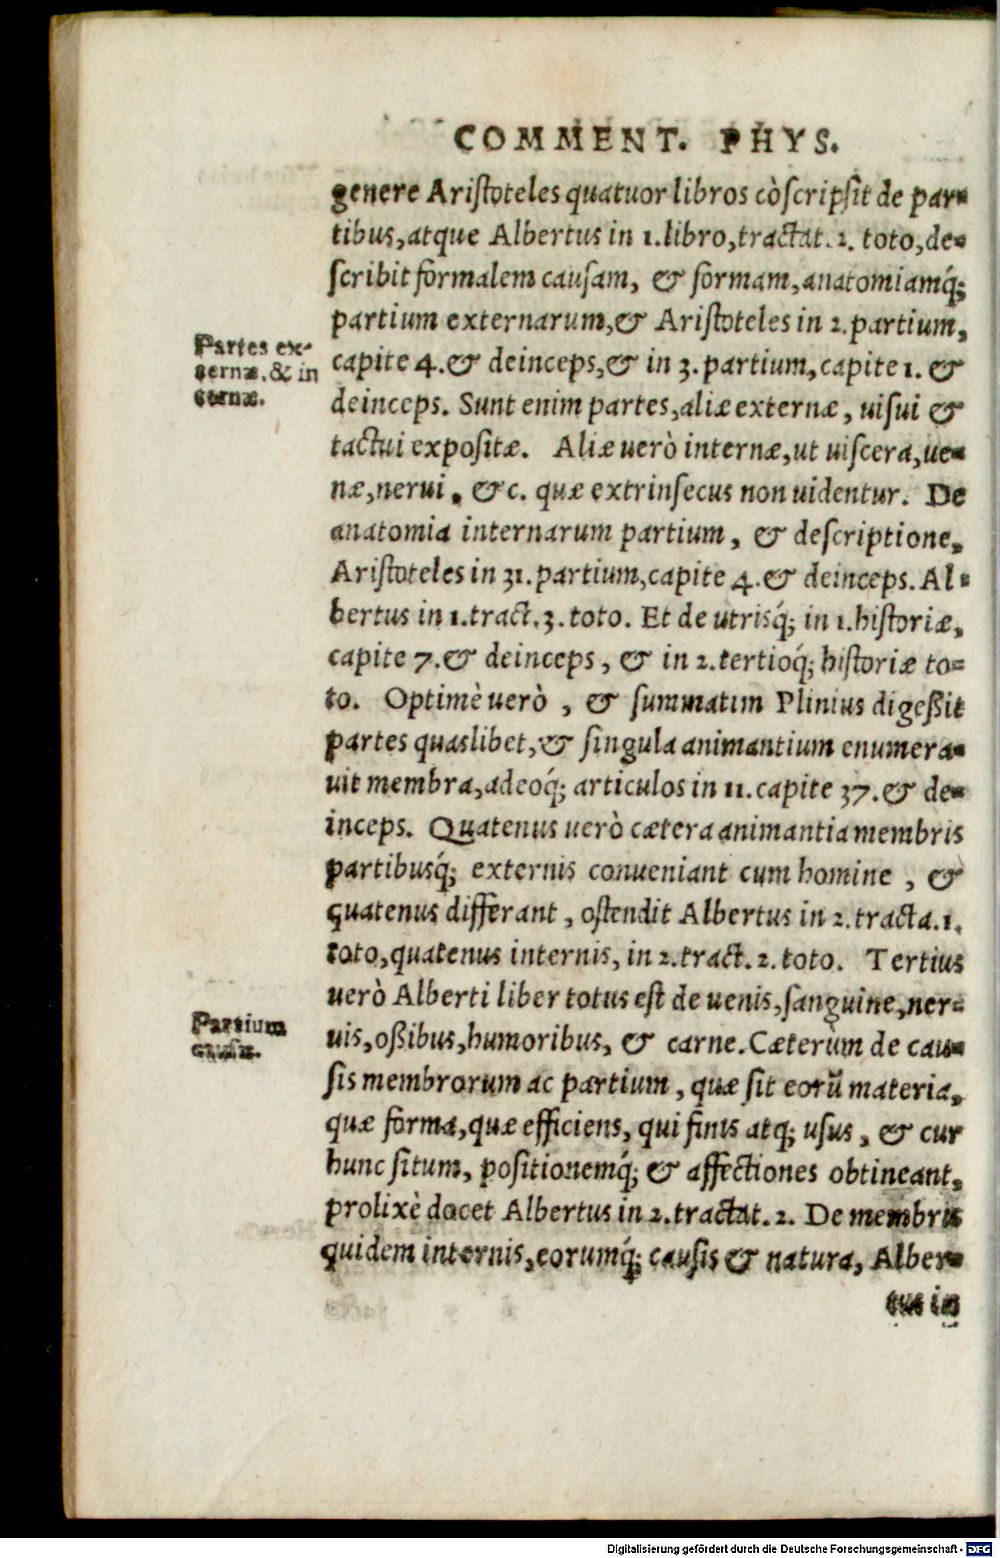 COMMENT. PHYS.
genere Aristoteles quatuor libros còscripsit de par-
tibus, atque Albertus in 1. libro, tractat. 2. toto, de-
scribit formalem causam, & formam, anatomiamq́;
partium externarum, & Aristoteles in 2. partium,
Partes ex-
ternæ, & in
ternæ.
capite 4. & deinceps, & in 3. partium, capite 1. &
deinceps. Sunt enim partes, aliæ externæ, uisui &
tactui expositæ. Aliæ uerò internæ, ut uiscera, ue-
næ, nerui, &c. quæ extrinsecus non uidentur. De
anatomia internarum partium, & descriptione,
Aristoteles in 31. partium, capite 4. & deinceps. Al-
bertus in 1. tract. 3. toto. Et de utrisq́; in 1. historiæ,
capite 7. & deinceps, & in 2. tertioq́; historiæ to-
to. Optimè uerò, & summatim Plinius digeßit
partes quaslibet, & singula animantium enumera-
uit membra, adeoq́; articulos in 11. capite 37. & de-
inceps. Quatenus uerò cætera animantia membris
partibusq́; externis conueniant cum homine, &
quatenus differant, ostendit Albertus in 2. tracta. 1.
toto, quatenus internis, in 2. tract. 2. toto. Tertius
uerò Alberti liber totus est de uenis, sanguine, ner-
Partium
causæ.
uis, oßibus, humoribus, & carne. Cæterùm de cau-
sis membrorum ac partium, quæ sit eorũ materia,
quæ forma, quæ efficiens, qui finis atq; usus, & cur
hunc situm, positionemq́; & affectiones obtineant,
prolixè docet Albertus in 2. tractat. 2. De membris
quidem internis, eorumq́; causis & natura, Alber-
tus in
Digitalisierung gefördert durch die Deutsche Forschungsgemeinschaft - DFG